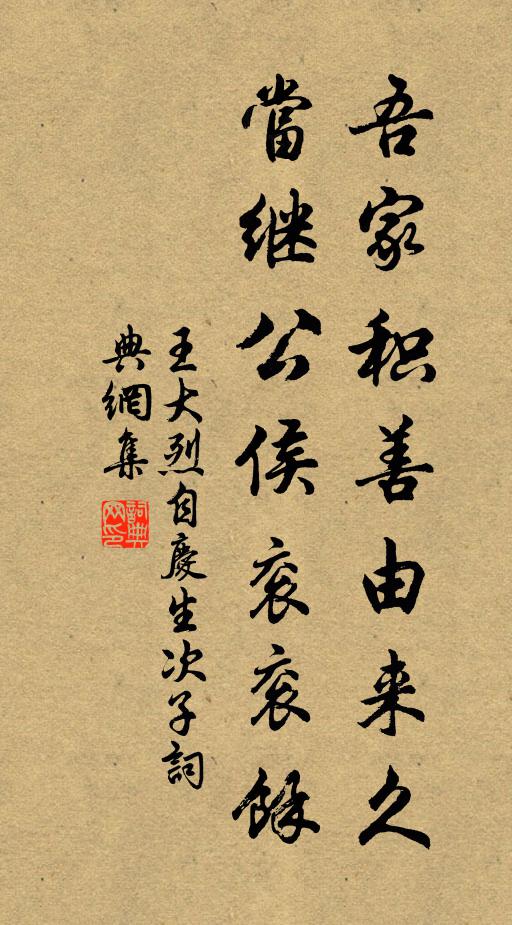 吾家积善由来久
當继公侯衮衮餘
王大烈自慶生次子詞
典網集
詞典
网印